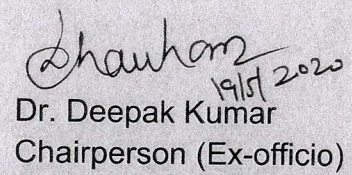 Dhauhan
19/5/2020
Dr. Deepak Kumar
Chairperson (Ex-officio)